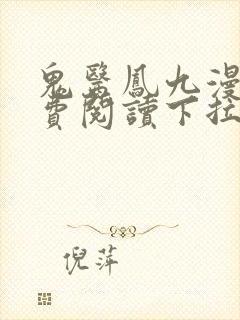 鬼醫鳳九漫
費閱讀下拉
倪萍